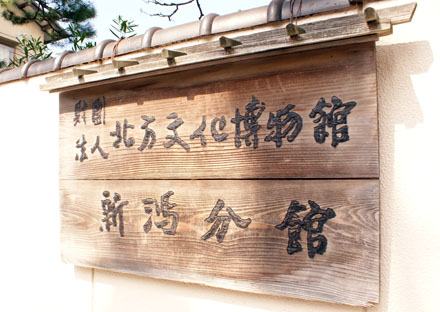 財團法人北方文化博物館
新潟分館